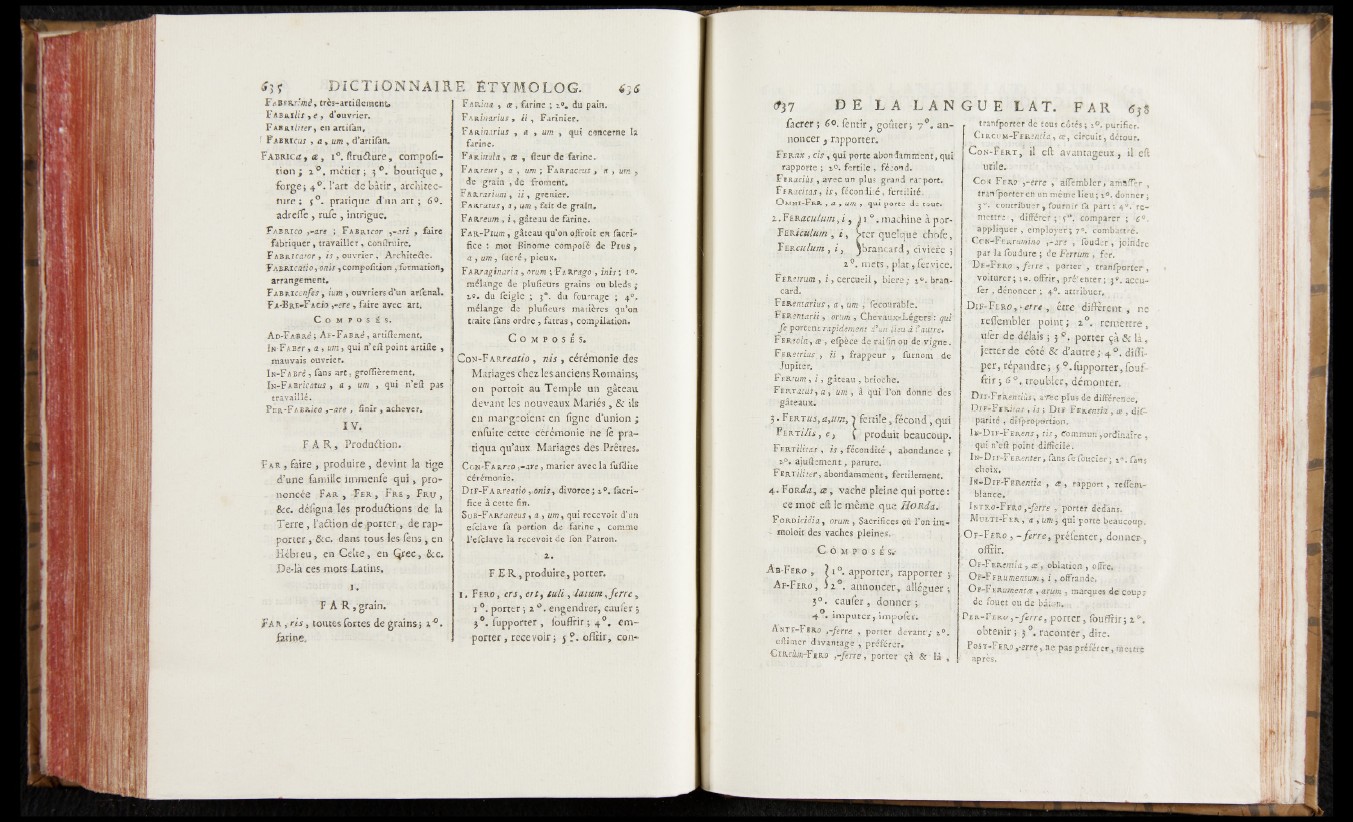 635 DICTIONNAIRE ÉTYMOLOG. 636
FABERrimè, très-artistement.
FABRIlis, e, d'ouvrier.
FABRIliter, en artisan.
FABRIcus, a, um, d'artisan.
FABRIca, æ, 1°. structure, composi-
tion ; 2°. métier ; 3°. boutique,
forge ; 4°. l'art de bâtir, architec-
ture ; 5°. pratique d'un art ; 6°.
adresse, ruse, intrigue.
FABRIco,-are ; FABRIcor,-ari, faire
fabriquer, travailler, construire.
FABRIcator, is, ouvrier, Architecte.
FABRIcatio, onis, composition, formation,
arrangement.
FABRIcenses, ium, ouvriers d'un arsenal.
FA-BRE-FAcio,-ere, faire avec art.
COMPOSÉS.
AD-FABRé ; AF-FABRé, artistement.
IN-FABer, a, um, qui n'est point artiste,
mauvais ouvrier.
IN-FABré, sans art, grossièrement.
IN-FABRIcatus, a, um, qui n'est pas
travaillé.
PER-FABRIco,-are, finir, achever.
IV.
FAR, Production.
FAR, faire, produire, devint la tige
d'une famille immense qui, pro-
noncée FAR, FER, FRE, FRU,
&c. désigna les productions de la
Terre, l'action de porter, de rap-
porter, &c. dans tous les sens, en
Hébreu, en Celte, en Grec, &c.
De-là ces mots Latins.
1.
FAR, grain.
FAR, ris, toutes sortes de grains ; 2°.
farine.
FARina, æ, farine ; 2°. du pain.
FARinarius, ii, Farinier.
FARinarius, a, um, qui concerne la
farine.
FARinula, æ, fleur de farine.
FARreus, a, um ; FARraceus, a, um,
de grain, de froment.
FARrarium, ii, grenier.
FARratus, a, um, fait de grain.
FARreum, i, gâteau de farine.
FAR-Pium, gâteau qu'on offroit en sacri-
fice : mot Binome composé de PIus,
a, um, sacré, pieux.
FARraginaria, orum ; FARrago, inis ; 1°.
mélange de plusieurs grains ou bleds ;
2°. du seigle ; 3°. du fourrage ; 4°.
mélange de plusieurs matières qu'on
traite sans ordre, fatras, compilation.
COMPOSÉS.
CON-FARreatio, nis, cérémonie des
Mariages chez les anciens Romains ;
on portoit au Temple un gâteau
devant les nouveaux Mariés, & ils
en mangeoient en signe d'union ;
ensuite cette cérémonie ne se pra-
tiqua qu'aux Mariages des Prêtres.
CON-FARreo,-are, marier avec la susdite
cérémonie.
DIF-FARreatio, onis, divorce ; 2°. sacri-
fice à cette fin.
SUB-FARraneus, a, um, qui recevoit d'un
esclave sa portion de farine, comme
l'esclave la recevoit de son Patron.
2.
FER, produire, porter.
1. FERO, ers, ert, tuli, latum, ferre,
1°. porter ; 2°. engendrer, causer ;
3°. supporter, souffrir ; 4°. em-
porter, recevoir ; 5°. offrir, con-
637 DE LA LANGUE LAT. FAR 638
sacrer ; 6°. sentir, goûter ; 7°. an-
noncer, rapporter.
FERax, cis, qui porte abondamment, qui
rapporte ; 2°. fertile, fécond.
FERaciùs, avec un plus grand rapport.
FERacitas, is, fécondité, fertilité.
OMNI-FER, a, um, qui porte de tout.
2. FERaculum, i, } 1°. machine à por-
FERiculum, i, } ter quelque chose,
FERculum, i, } brancard, civière ;
2°. mets, plat, service.
FERetrum, i, cercueil, biere ; 2°. bran-
card.
FERentarius, a, um, secourable.
FERentarii, orum, Chevaux-Légers : qui
se portent rapidement d'un lieu à l'autre.
FERtola, æ, espèce de raisin ou de vigne.
FERetrius, ii, frappeur, surnom de
Jupiter.
FERtum, i, gâteau, brioche.
FERTatus, a, um, à qui l'on donne des
gâteaux.
3. FERTus, a, um, } fertile, fécond, qui
FERTilis, e, } produit beaucoup.
FERTilitas, is, fécondité, abondance ;
2°. ajustement, parure.
FERTiliter, abondamment, fertilement.
4. FORda, æ, vache pleine qui porte :
ce mot est le même que HORda.
FORDicidia, orum, Sacrifices où l'on im-
moloit des vaches pleines.
COMPOSÉS.
AB-FERO, } 1°. apporter, rapporter ;
AF-FERO, } 2°. annoncer, alléguer ;
3°. causer, donner ;
4°. imputer, imposer.
ANTE-FERO,-ferre, porter devant ; 2°.
estimer davantage, préférer.
CIRCùm-FERO,-ferre, porter çà & là,
transporter de tous côtés ; 2°. purifier.
CIRCUM-FERentia, æ, circuit, détour.
CON-FERT, il est avantageux, il est
utile.
CON FERO,-erre, assembler, amasser,
transporter en un même lieu ; 2°. donner ;
3°. contribuer, fournir sa part ; 4°. re-
mettre, différer ; 5°. comparer ; 6°.
appliquer, employer ; 7°. combattre.
CON-FERrumino,-are, souder, joindre
par la soudure ; de Ferrum, fer.
DE-FERO, ferre, porter, transporter,
voiturer ; 2°. offrir, présenter ; 3°. accu-
ser, dénoncer ; 4°. attribuer.
DIF-FERO,-erre, être différent, ne
ressembler point ; 2°. remettre,
user de délais ; 3°. porter çà & là,
jetter de côté & d'autre ; 4°. dissi-
per, répandre ; 5°. supporter, souf-
frir ; 6°. troubler, démonter.
DIF-FERentiùs, avec plus de différence.
DIF-FERitas, is ; DIF FERentia, æ, dis-
parité, disproportion.
IN-DIF-FERens, tis, commun, ordinaire,
qui n'est point difficile.
IN-DIF-FERenter, sans se soucier ; 2°. sans
choix.
IN-DIF-FERentia, æ, rapport, ressem-
blance.
INTRO-FERO,-ferre, porter dedans.
MULTI-FER, a, um, qui porte beaucoup.
OF-FERO,-ferre, présenter, donner,
offrir.
OF-FERentia, æ, oblation, offre.
OF-FERumentum, i, offrande.
OF-FERumentæ, arum, marques de coups
de fouet ou de bâton.
PER-FERO,-ferre, porter, souffrir ; 2°.
obtenir ; 3°. raconter, dire.
POST-FERO,-erre, ne pas préférer, mettre
après.